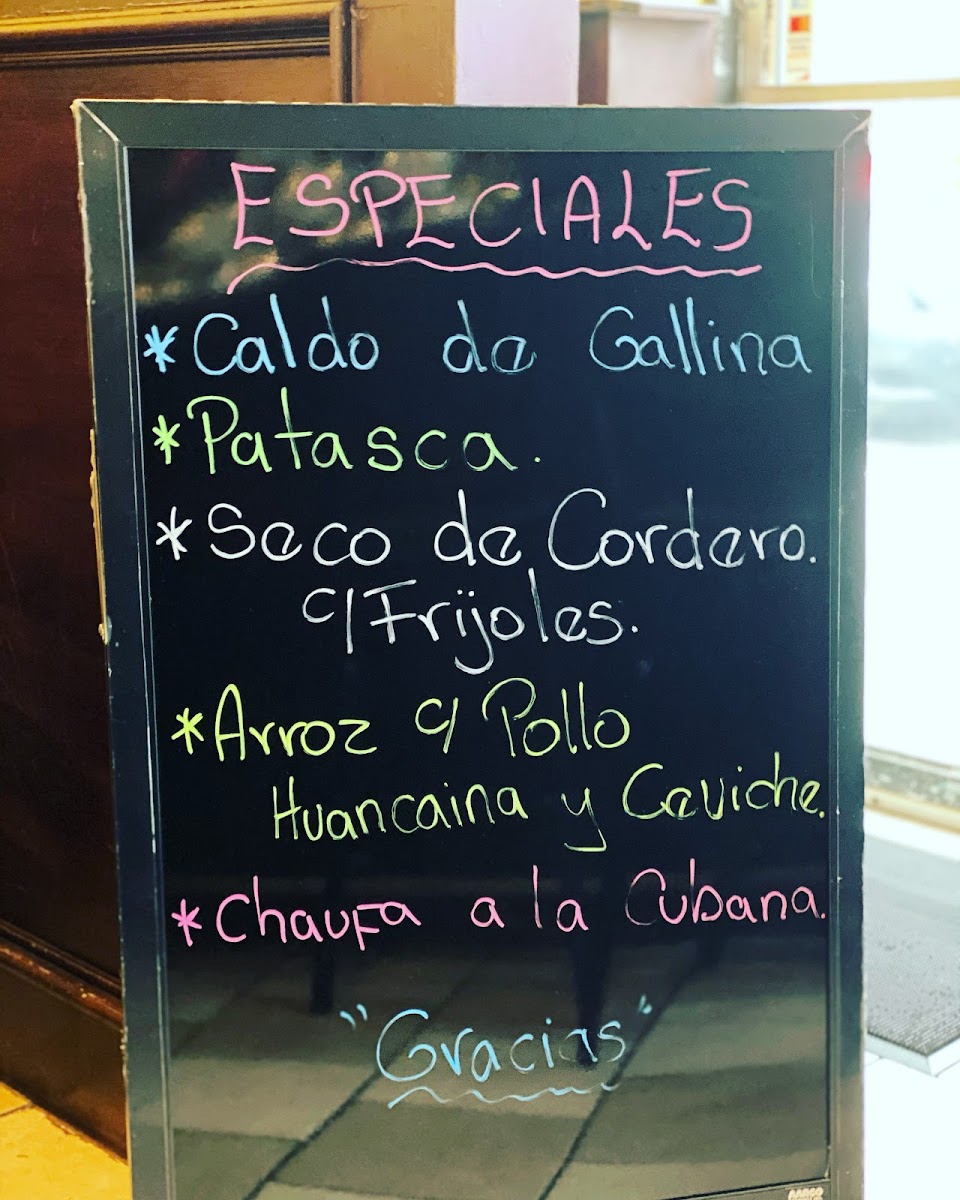 ESPECIALES
*Caldo de Gallina
*Patasca.
*Seco de Cordero.
c/Frijoles.
*Arroz c/ Pollo
Huancaina y Ceviche.
*Chaufa a la Cubana.
"Gracias"